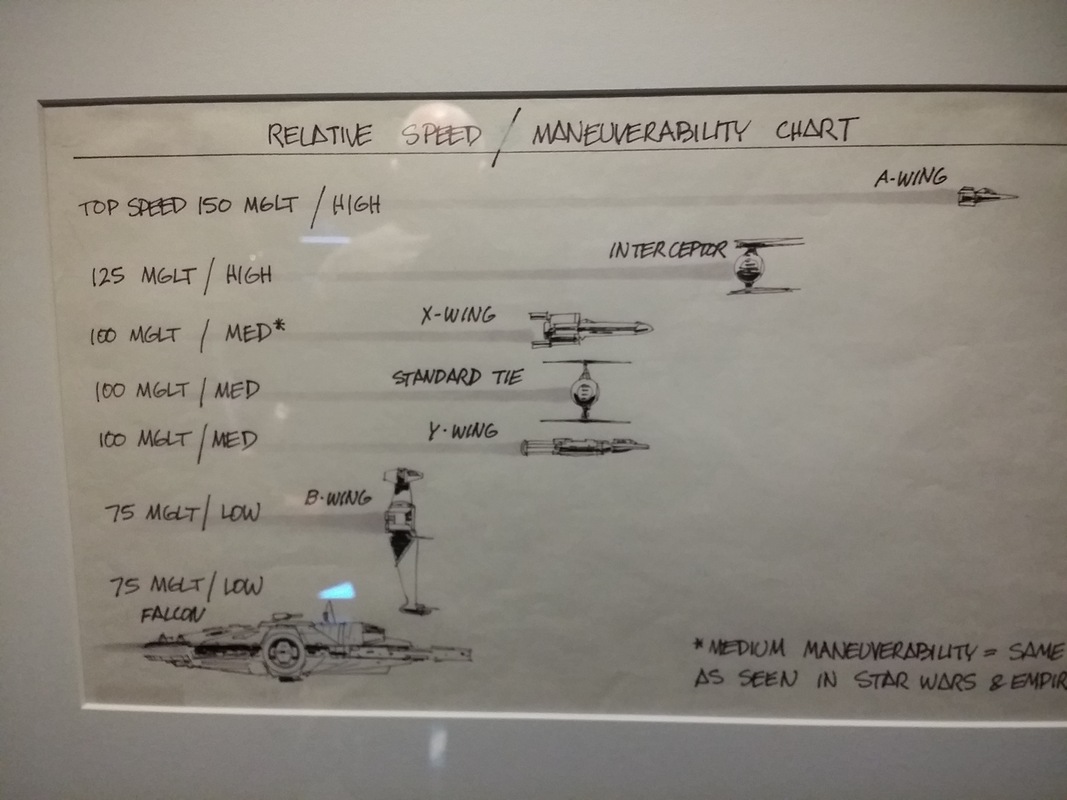 RELATIVE SPEED / MANEUVERABILITY CHART
TOP SPEED 150 MGLT / HIGH
A-WING
125 MGLT / HIGH
INTERCEPTOR
100 MGLT / MED*
X-WING
100 MGLT / MED
STANDARD TIE
100 MGLT / MED
Y-WING
75 MGLT / LOW
B-WING
75 MGLT / LOW
FALCON
*MEDIUM MANEUVERABILITY = SAME
AS SEEN IN STAR WARS & EMPIR